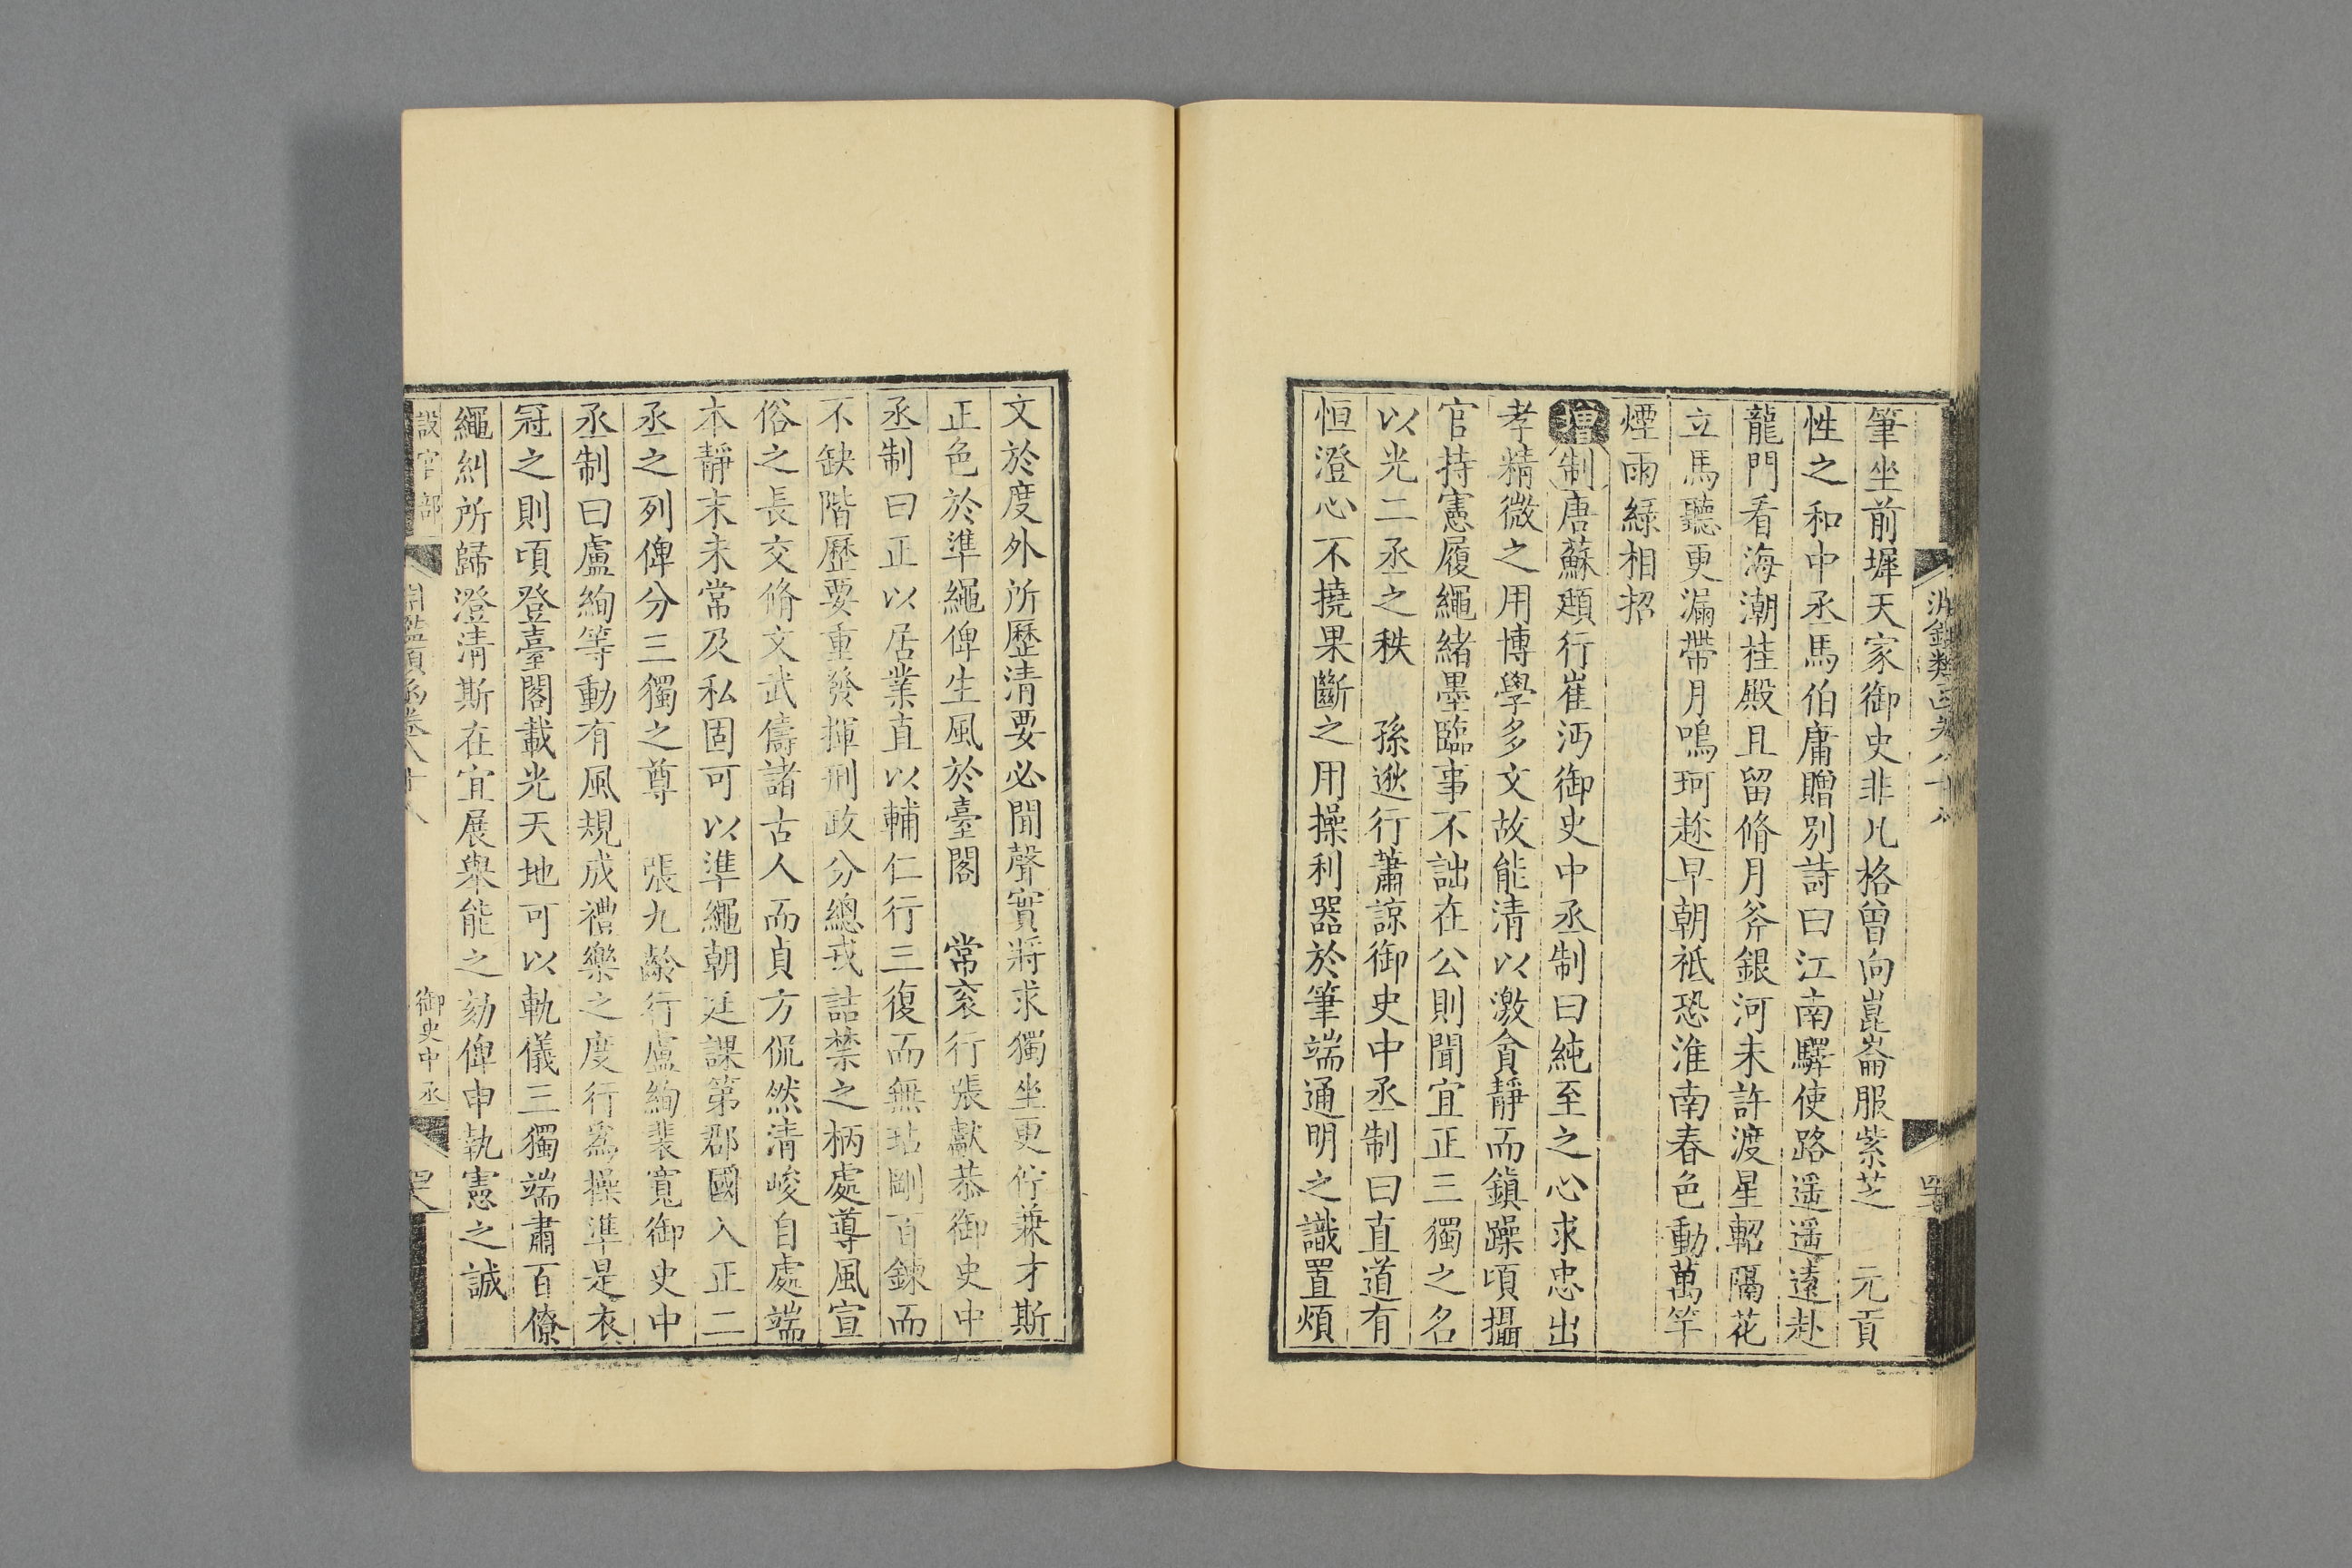 筆坐前墀天家御史非凡格曾向崑崙服紫芝 元貢
性之和中丞馬伯庸贈別詩曰江南驛使路遥遥遠赴
龍門看海潮桂殿且留脩月斧銀河未許渡星軺隔花
立馬聽更漏帶月鳴珂趂早朝祗恐淮南春色動萬竿
煙雨緑相招
增制唐蘇頲行崔沔御史中丞制曰純至之心求忠出
孝精微之用博學多文故能清以激貪靜而鎮躁頃攝
官持憲履繩緒墨臨事不詘在公則聞宜正三獨之名
以光二丞之秩 孫逖行蕭諒御史中丞制曰直道有
恒澄心不撓果斷之用操利器於筆端通明之識置煩
文於度外所歷清要必聞聲實將求獨坐更佇兼才斯
正色於準繩俾生風於臺閣 常衮行張獻恭御史中
丞制曰正以居業直以輔仁行三復而無玷剛百鍊而
不缺階歷要重發揮刑政分總戎詰禁之柄處導風宣
俗之長交脩文武儔諸古人而貞方侃然清峻自處端
本靜末未常及私固可以準繩朝廷課第郡國入正二
丞之列俾分三獨之尊 張九齡行盧絢裴寬御史中
丞制曰盧絢等動有風規成禮樂之度行爲操準是衣
冠之則頃登臺閣載光天地可以軌儀三獨端肅百僚
繩糾所歸澄清斯在宜展舉能之効俾申執憲之誠
設官部 淵鑑類函卷八十八 御史中丞